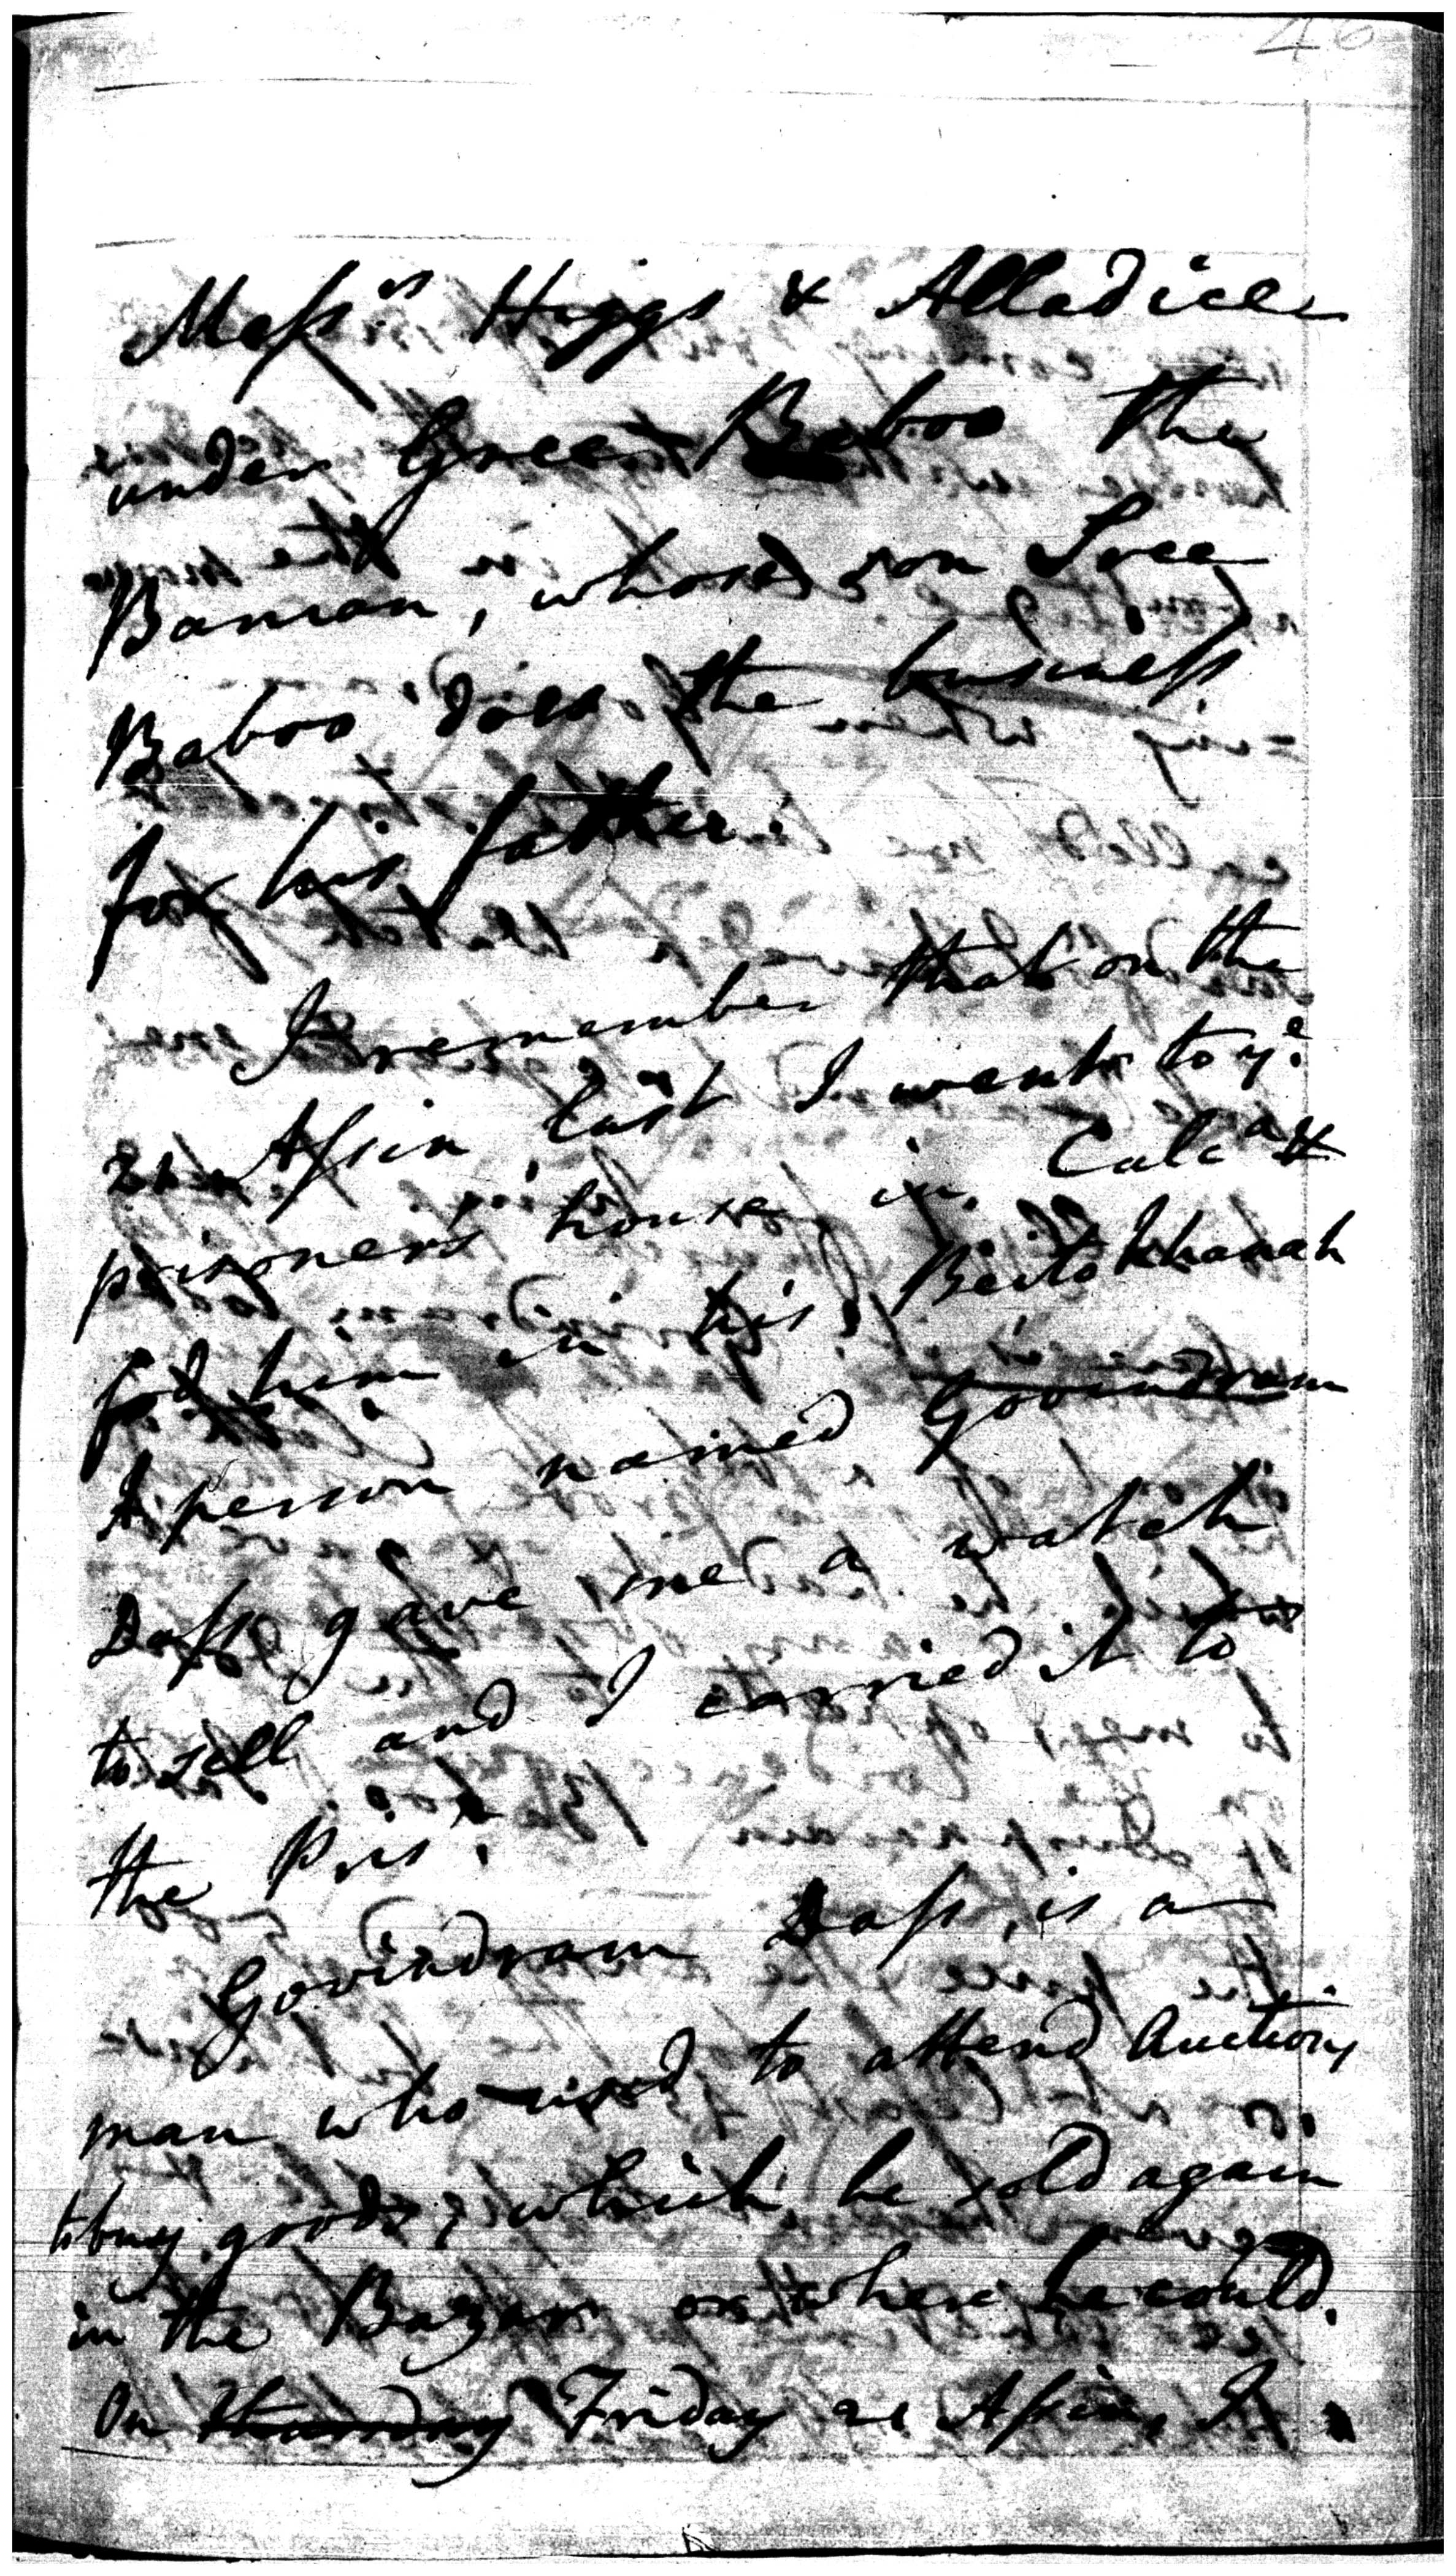 46
Mess.rs Higgs & Alladice
under Gree Baboo the
Banian, whose son Sree
Baboo does the business
for his father.
I remember that on the
21 Assin last I went to y.e
prisoners house in Calc.a &
fo.d him in his Beitokhanah
A person named Govindram
Dass gave me a watch
to sell and I carried it to
the Pris.r
Govindram Dass, is a
man who used to attend Auctions
to buy goods, which he sold again
in the Bazar or where he could.
On Thursday Friday 21 Assin, I